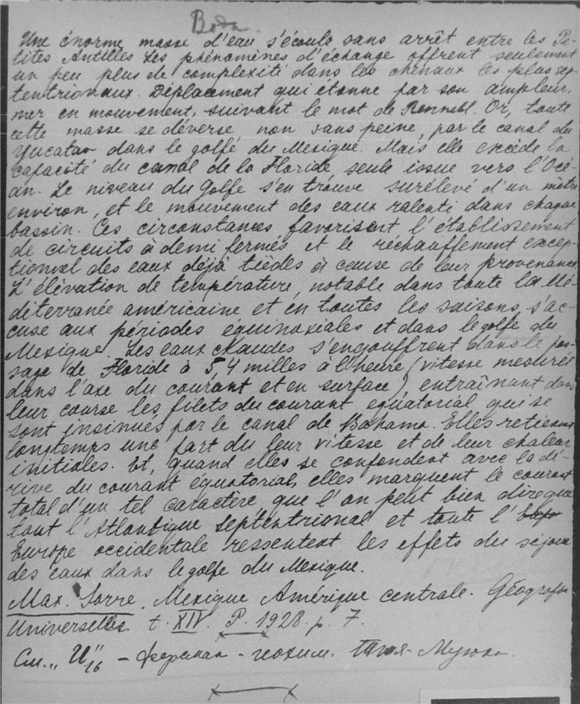 Вода
Une énorme masse d'eau s'écoule sans arrêt entre les Pe-
tites Antilles Les phénomènes d'échange offrent seulement
un peu plus de complexité dans les chenaux les plus sep-
tentrionaux. Déplacement qui étonne par son ampleur,
mer en mouvement, suivant le mot de Rennebl. Or, toute
cette masse se déverse, non sans peine, par le canal du
Yucatan dans le golfe du Mexique. Mais elle excède la
capacité du canal de la Floride, seule issue vers l'Océ-
an. Le niveau du Golfe s'en trouve surélevé d'un mètre
environ, et le mouvement des eaux ralenti dans chaque
bassin. Ces circonstances favorisent l'établissement
de circuits à demi fermés et le réchauffement excep-
tionnel des eaux déjà tièdes à cause de leur provenance
L'élévation de température, notable dans toute la Mé-
diterranée américaine et en toutes les saisons, s'ac-
cuse aux périodes équinoxiales et dans le golfe du
Mexique. Les eaux chaudes s'engouffrent dans le pas-
sage de Floride à 5,4 milles à l'heure (vitesse mesurée
dans l'axe du courant et en surface), entraînant dans
leur course les filets du courant équatorial qui se
sont insinués par le canal de Bahama. Elles retiennent
longtemps une part du leur vitesse et de leur chaleur
initiales. Et, quand elles se confondent avec la dé-
rive du courant équatorial, elles marquent le courant
total d'un tel caractère que l'on peut bien dire que
tout l'Atlantique septentrional et toute l'
Europe occidentale ressentent les effets du séjour
des eaux dans le golfe du Mexique.
Max. Sorre. Mexique Amérique centrale. Géograph
Universelles. t. XIV P. 1928. p. 7.
См. „И"16 – Ферсман - геохим.